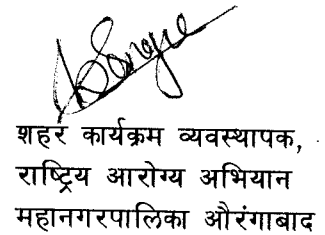 शहर कार्यक्रम व्यवस्थापक,
राष्ट्रिय आरोग्य अभियान
महानगरपालिका औरंगाबाद